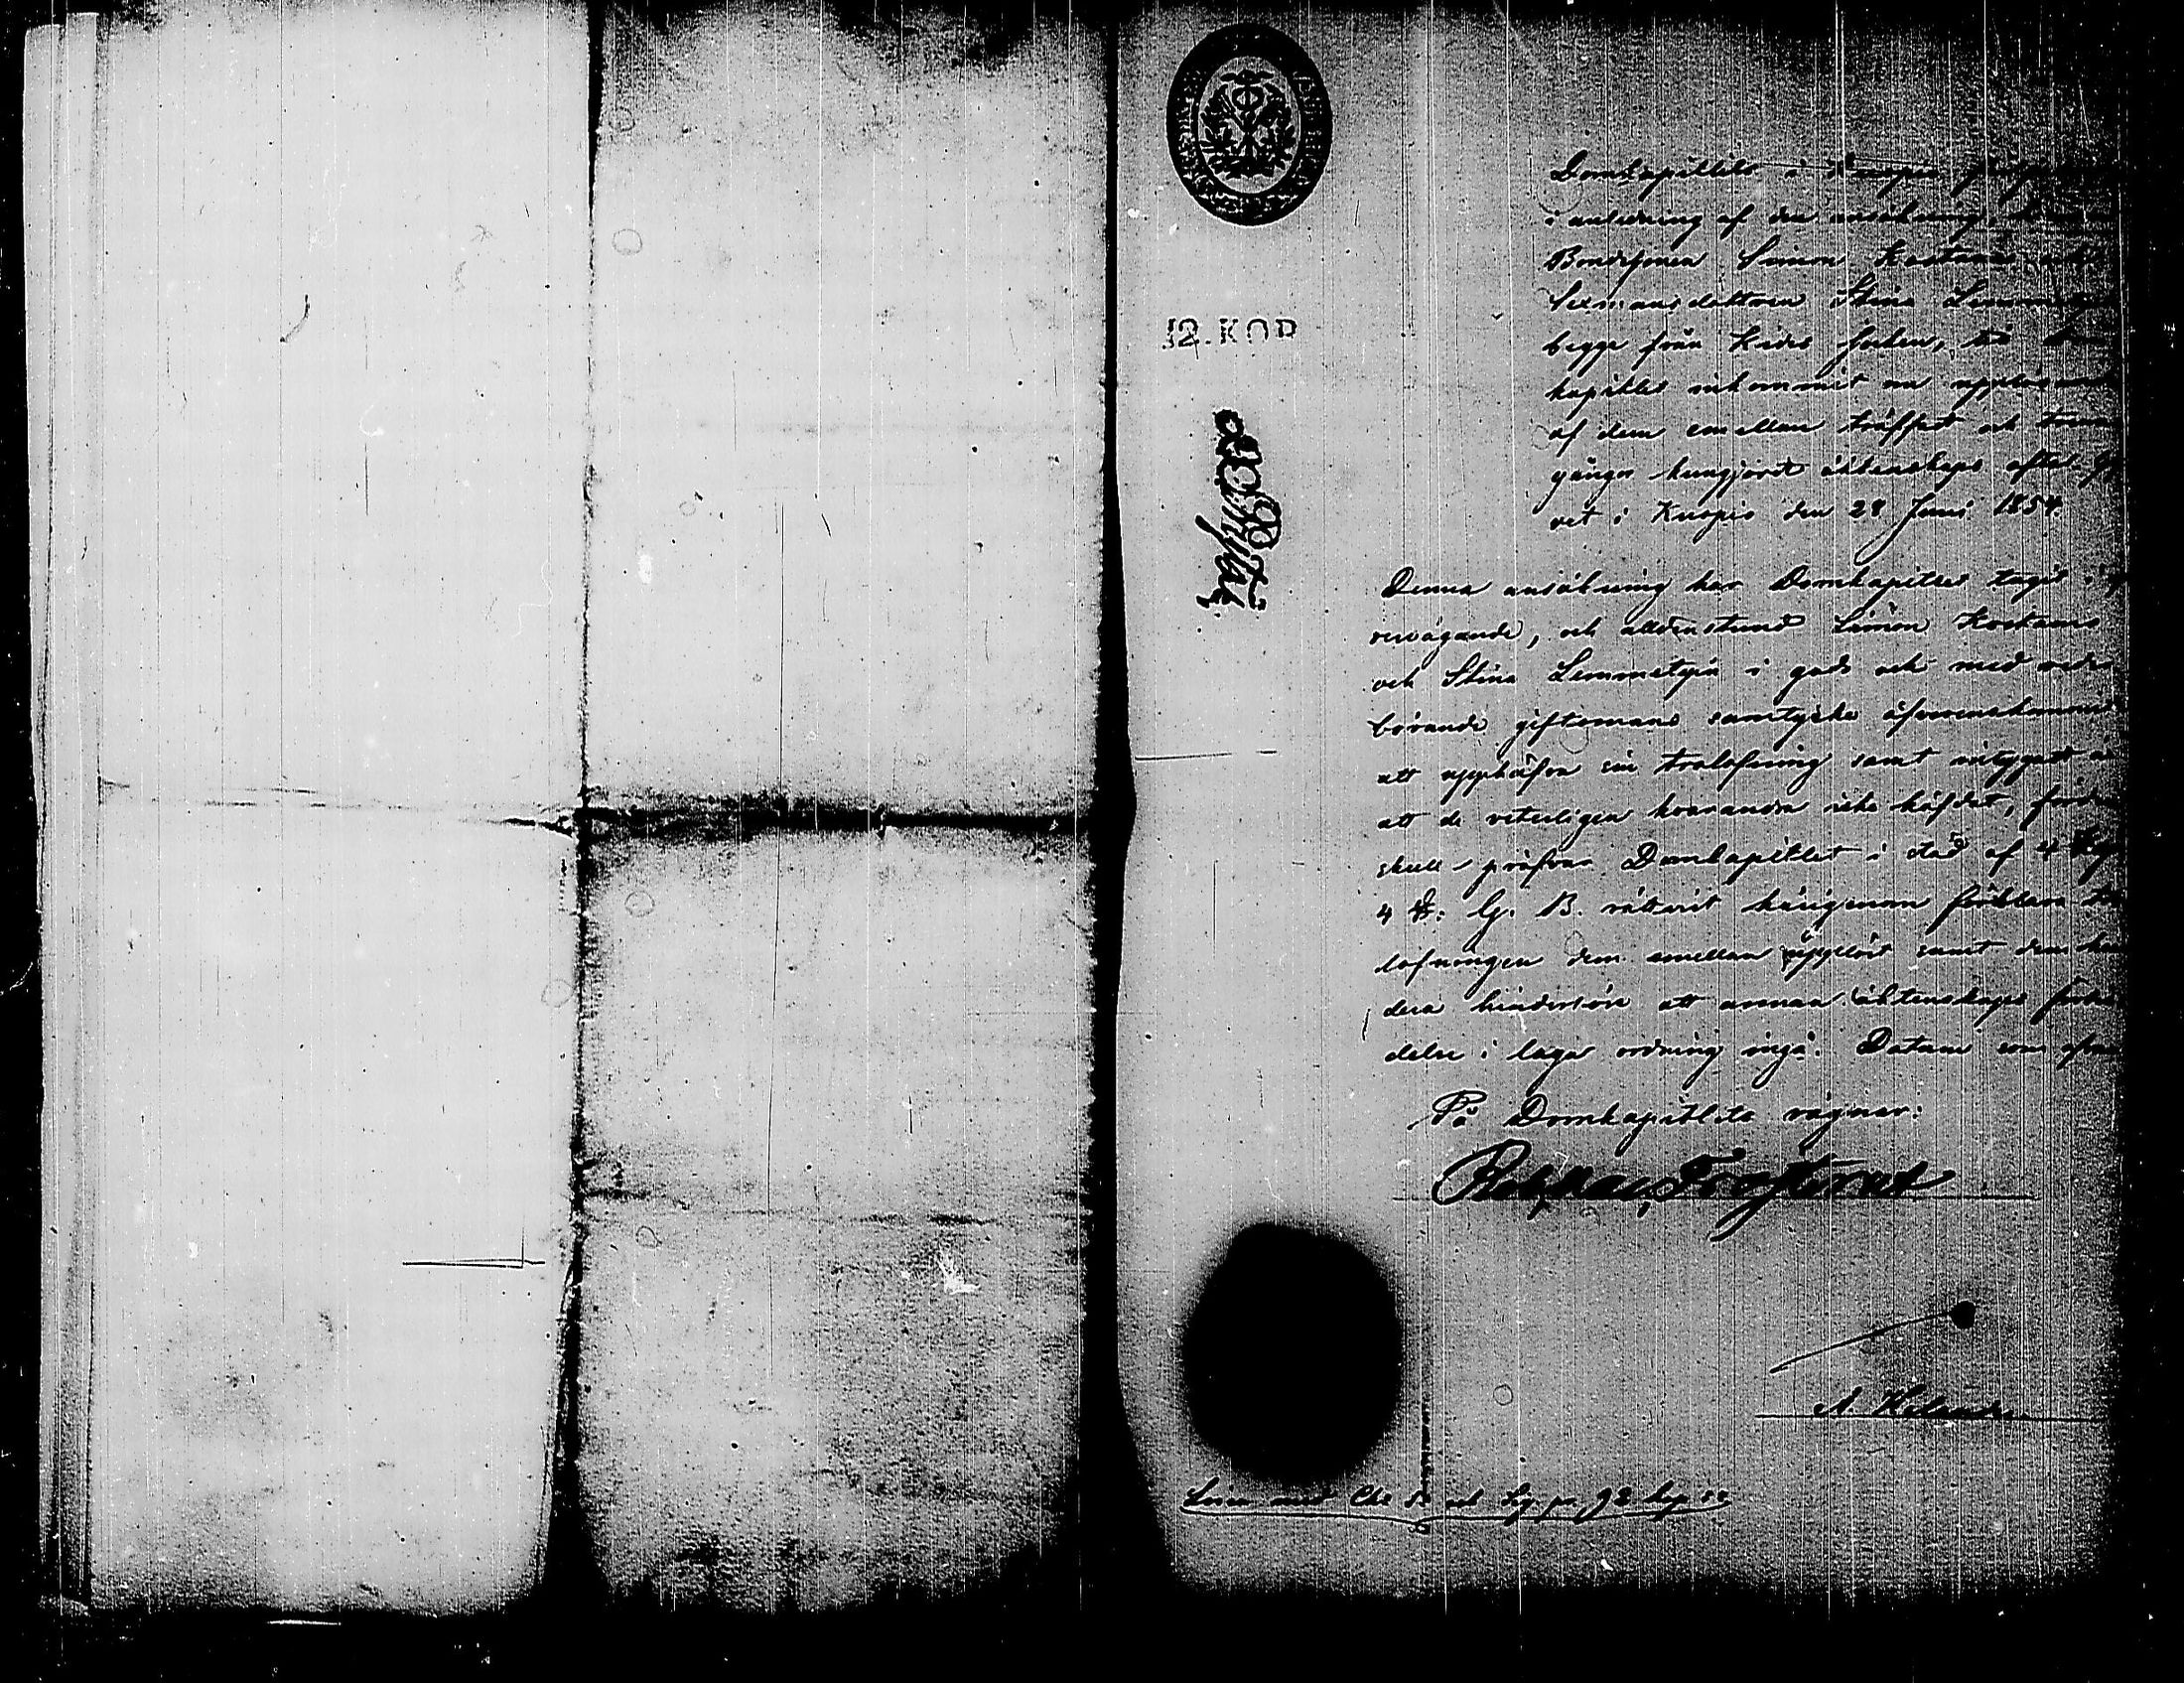 12. KOP
Domkapitlets i Kuopio
i anledning af den ansökning,
Bondesonen Simon Kostamo och
Sexmansdottren Stina Lemmetyi
begge från Kides socken, till Dom
kapitlet inkommit om upplösning
af dem emellan träffadt och trenne
gånger kungjordt äktenskaps aftal; gif
vet i Kuopio den 28 Juni 1854.
Denna ansökning har Domkapitlet tagit i öf
vervägande, och alldenstund Simon Kostamo
och Stina Lemmetyiä i godo och med veder
börande giftomans samtycke öfverenskommit
att upphäfva sin trolofning samt intygat är
att de veterligen hvarandra icke häfdat,
skull pröfvar Domkapitlet i stöd af 4 Cap
4 §: G. B. rättvist härigenom förklara tro
lofningen dem emellan upplöst samt dem
dera hinderlöst att annan äktenskaps förbin
delse i laga ordning ingå. Datum som ofvan
På Domkapitlets vägnar:
Rob. Val. Frosterus
A.
Lösen med Ch. S. och